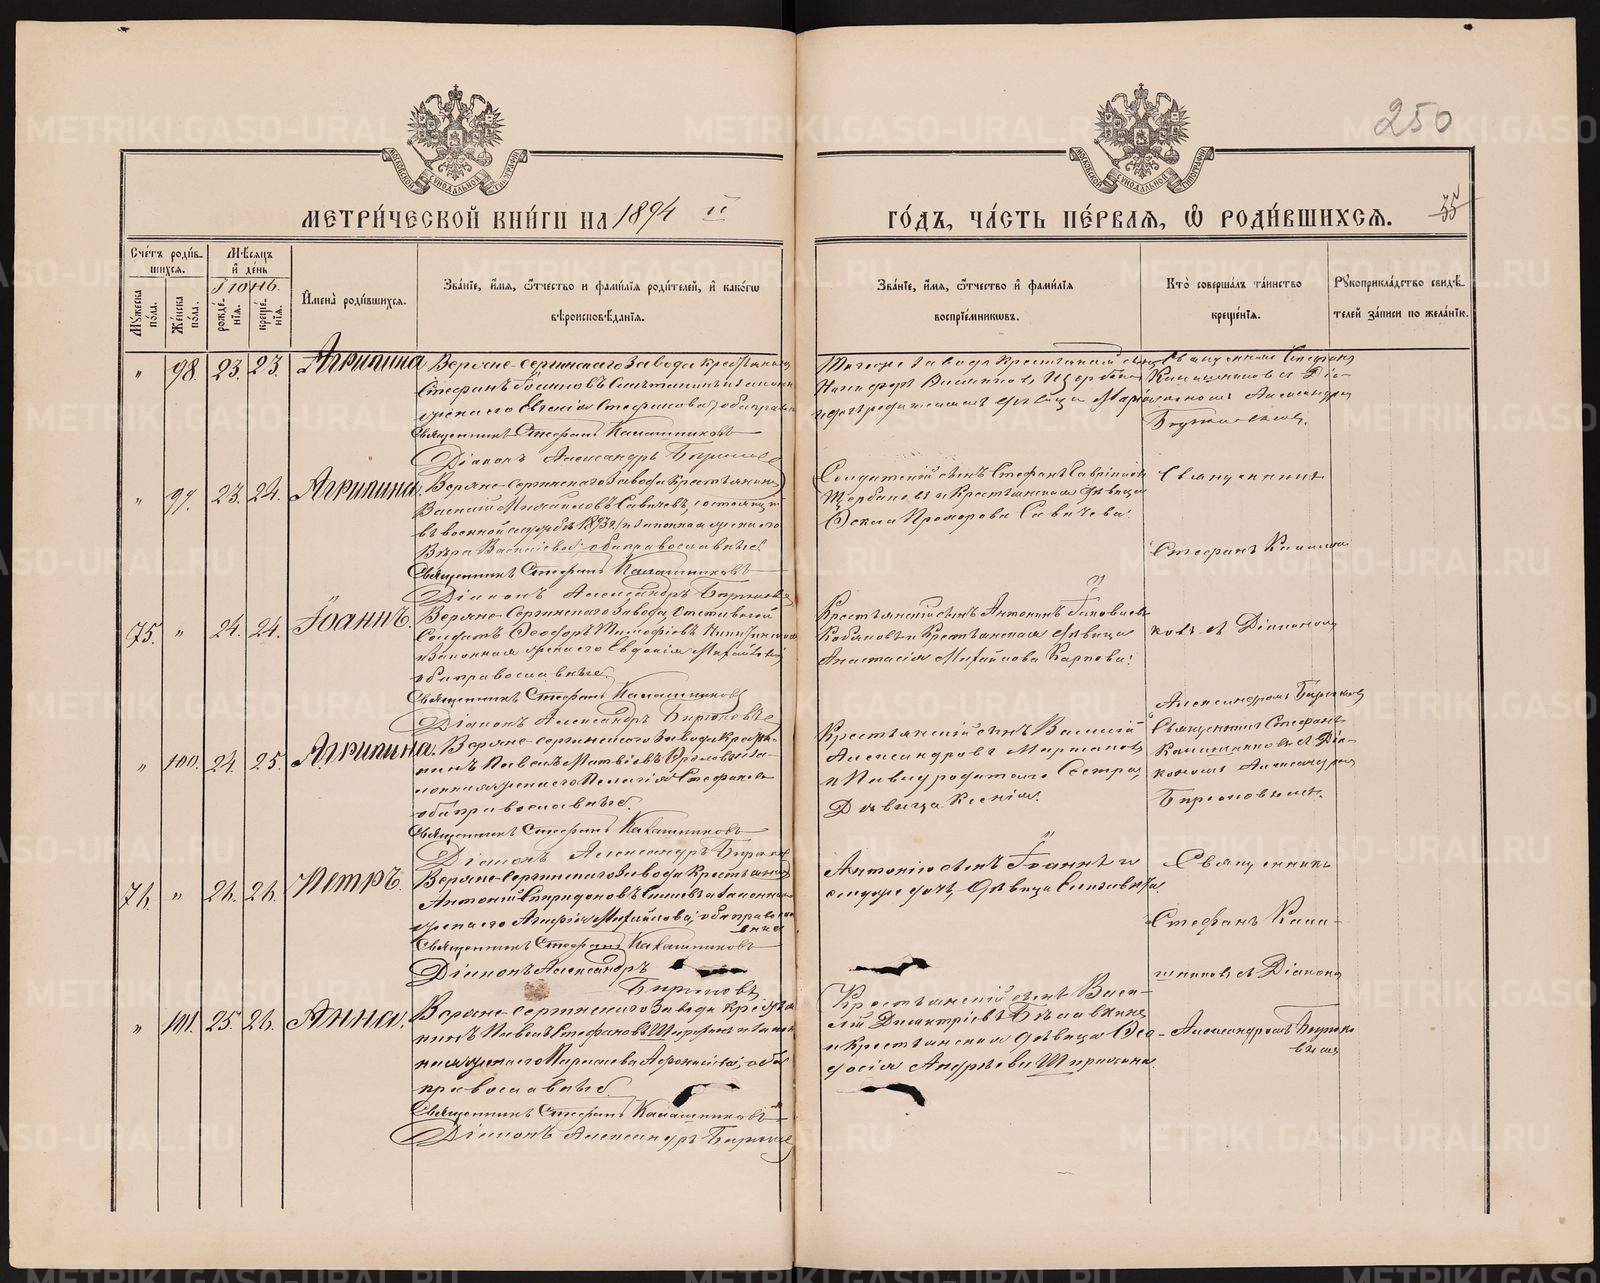 250
МЕТРИ́ЧЕСКОЙ КНИ́ГИ НА 1894
ГО́ДЪ, ЧА́СТЬ ПЕ́РВАЯ, Ѡ҆ РОДИ́ВШИХСЯ.
35
Сче́тъ роди́в-
шихся.
Мꙋ́жеска по́ла.
Же́нска по́ла.
Мѣ́сяцъ и҆ де́нь
Іюнь.
рожде́нїя.
креще́нїя.
И҆мена̀ роди́вшихся.
Зва́нїе, и҆́мя, ѻ҆́тчество и фами́лїя роди́телей, и҆ како́гѡ
вѣроисповѣ́данїя.
Зва́нїе, и҆́мя, ѻ҆́тчество и҆ фами́лїя
воспрїе́мникѡвъ.
Кто̀ соверша́лъ та́инство
креще́нїя.
Рꙋкоприкла́дство свидѣ́-
телей за́писи по жела́нїю.
" 98. 23. 23. Агрипина
Верхне-Сергинскаго Завода Крестьянинъ
Стефанъ
его Евгенія Стефанова, оба православн
Священникъ Стефанъ Калашниковъ
Діаконъ Александръ Бирюковъ
Тогоже Завода Крестьянскій сынъ
Никифоръ
дѣвица Марія
Священникъ Стефанъ
Калашниковъ съ Діа-
кономъ Александром
Бирюковымъ.
" 99. 23. 24. Агрипина.
Верхне-Сергинскаго Завода Крестьянинъ
Василій Михайловъ Савичевъ, состоящій
въ военной службѣ 1893 г. и законная жена его
Вѣра Василіева, оба православные.
Священникъ Стефанъ Калашниковъ
Діаконъ Александръ Бирюковъ
Солдатскій сынъ Стефанъ Гавріиловъ
Щербаковъ и Крестьянская дѣвица
Ѳекла Прохорова Савичева.
Священникъ
Стефанъ Калашни-
75. " 24. 24. Іоаннъ.
Верхне-Сергинскаго Завода, Отставной
Солдатъ Ѳеодоръ Тимофіевъ
и Законная жена его Евдокія Михайлова,
оба православные.
Священникъ Стефанъ Калашниковъ
Діаконъ Александръ Бирюковъ
Крестьянскій сынъ Антонинъ
и Крестьянская дѣвица
Анастасія Михайлова Карпова.
ковъ съ Діакономъ
Александромъ Бирюков
" 100. 24. 25. Агрипина.
Верхне-Сергинскаго Завода Кресть-
янинъ Павелъ Матвіевъ Орловъ и за-
конная жена его Пелагія Стефанова
оба православные.
Священникъ Стефанъ Калашниковъ
Діаконъ Александръ Бирюков
Крестьянскій сынъ Василій
Александровъ
и Павла родителя Сестра,
Дѣвица Ксенія.
Священникъ Стефанъ
Калашниковъ съ Діа-
кономъ Александром
Бирюковымъ.
76. " 26. 26. Петръ.
Верхне-Сергинскаго Завода Крестьянинъ
Антоній Спиридоновъ и Законная
жена его Агафія Михайлова, оба православ-
ные
Священникъ Стефанъ Калашниковъ
Діаконъ Александръ
Бирюковъ
Антонія сынъ Іоаннъ и
его же дочь, дѣвица Елизавета.
Священникъ
Стефанъ Кала-
шниковъ съ Діакон
" 101. 25. 26. Анна.
Верхне-Сергинскаго Завода Кресть-
янинъ Павелъ Стефановъ и закон
ная жена его оба
православные.
Священникъ Стефанъ Калашниковъ
Діаконъ Александръ Бирюков
Крестьянскій сынъ Васи-
лій Димитріевъ
и Крестьянская дѣвица Ѳео-
досія Андреева
Александромъ Бирюко-
вымъ